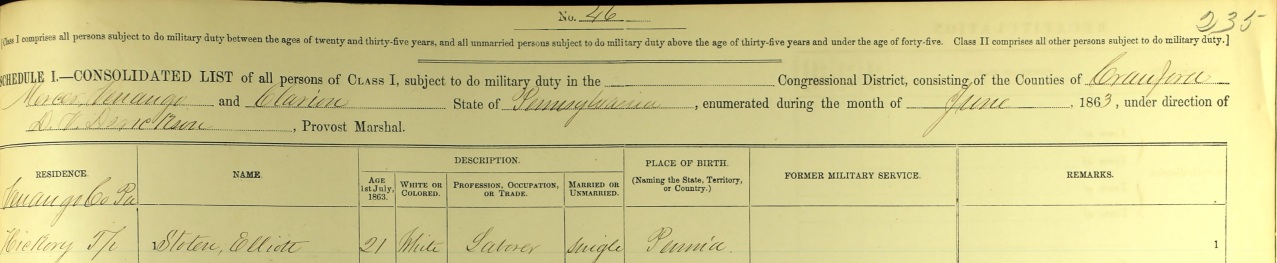 No. 46
235
[Class I comprises all persons subject to do military duty between the ages of twenty and thirty-five years, and all unmarried persons subject to do military duty above the age of thirty-five years and under the age of forty-five. Class II comprises all other persons subject to do military duty.]
SCHEDULE I.—CONSOLIDATED LIST of all persons of CLASS I, subject to do military duty in the Congressional District, consisting of the Counties of Crawford
Mercer, Venango and Clarion State of Pennsylvania, enumerated during the month of June, 1863, under direction of
Provost Marshal.
RESIDENCE. NAME. DESCRIPTION. PLACE OF BIRTH. FORMER MILITARY SERVICE. REMARKS.
AGE 1st July, 1863. WHITE OR COLORED. PROFESSION, OCCUPATION, OR TRADE. MARRIED OR UNMARRIED. (Naming the State, Territory, or Country.)
Venango Co Pa
Hickory Tp Elliott 21 White Laborer Single Pennia. 1